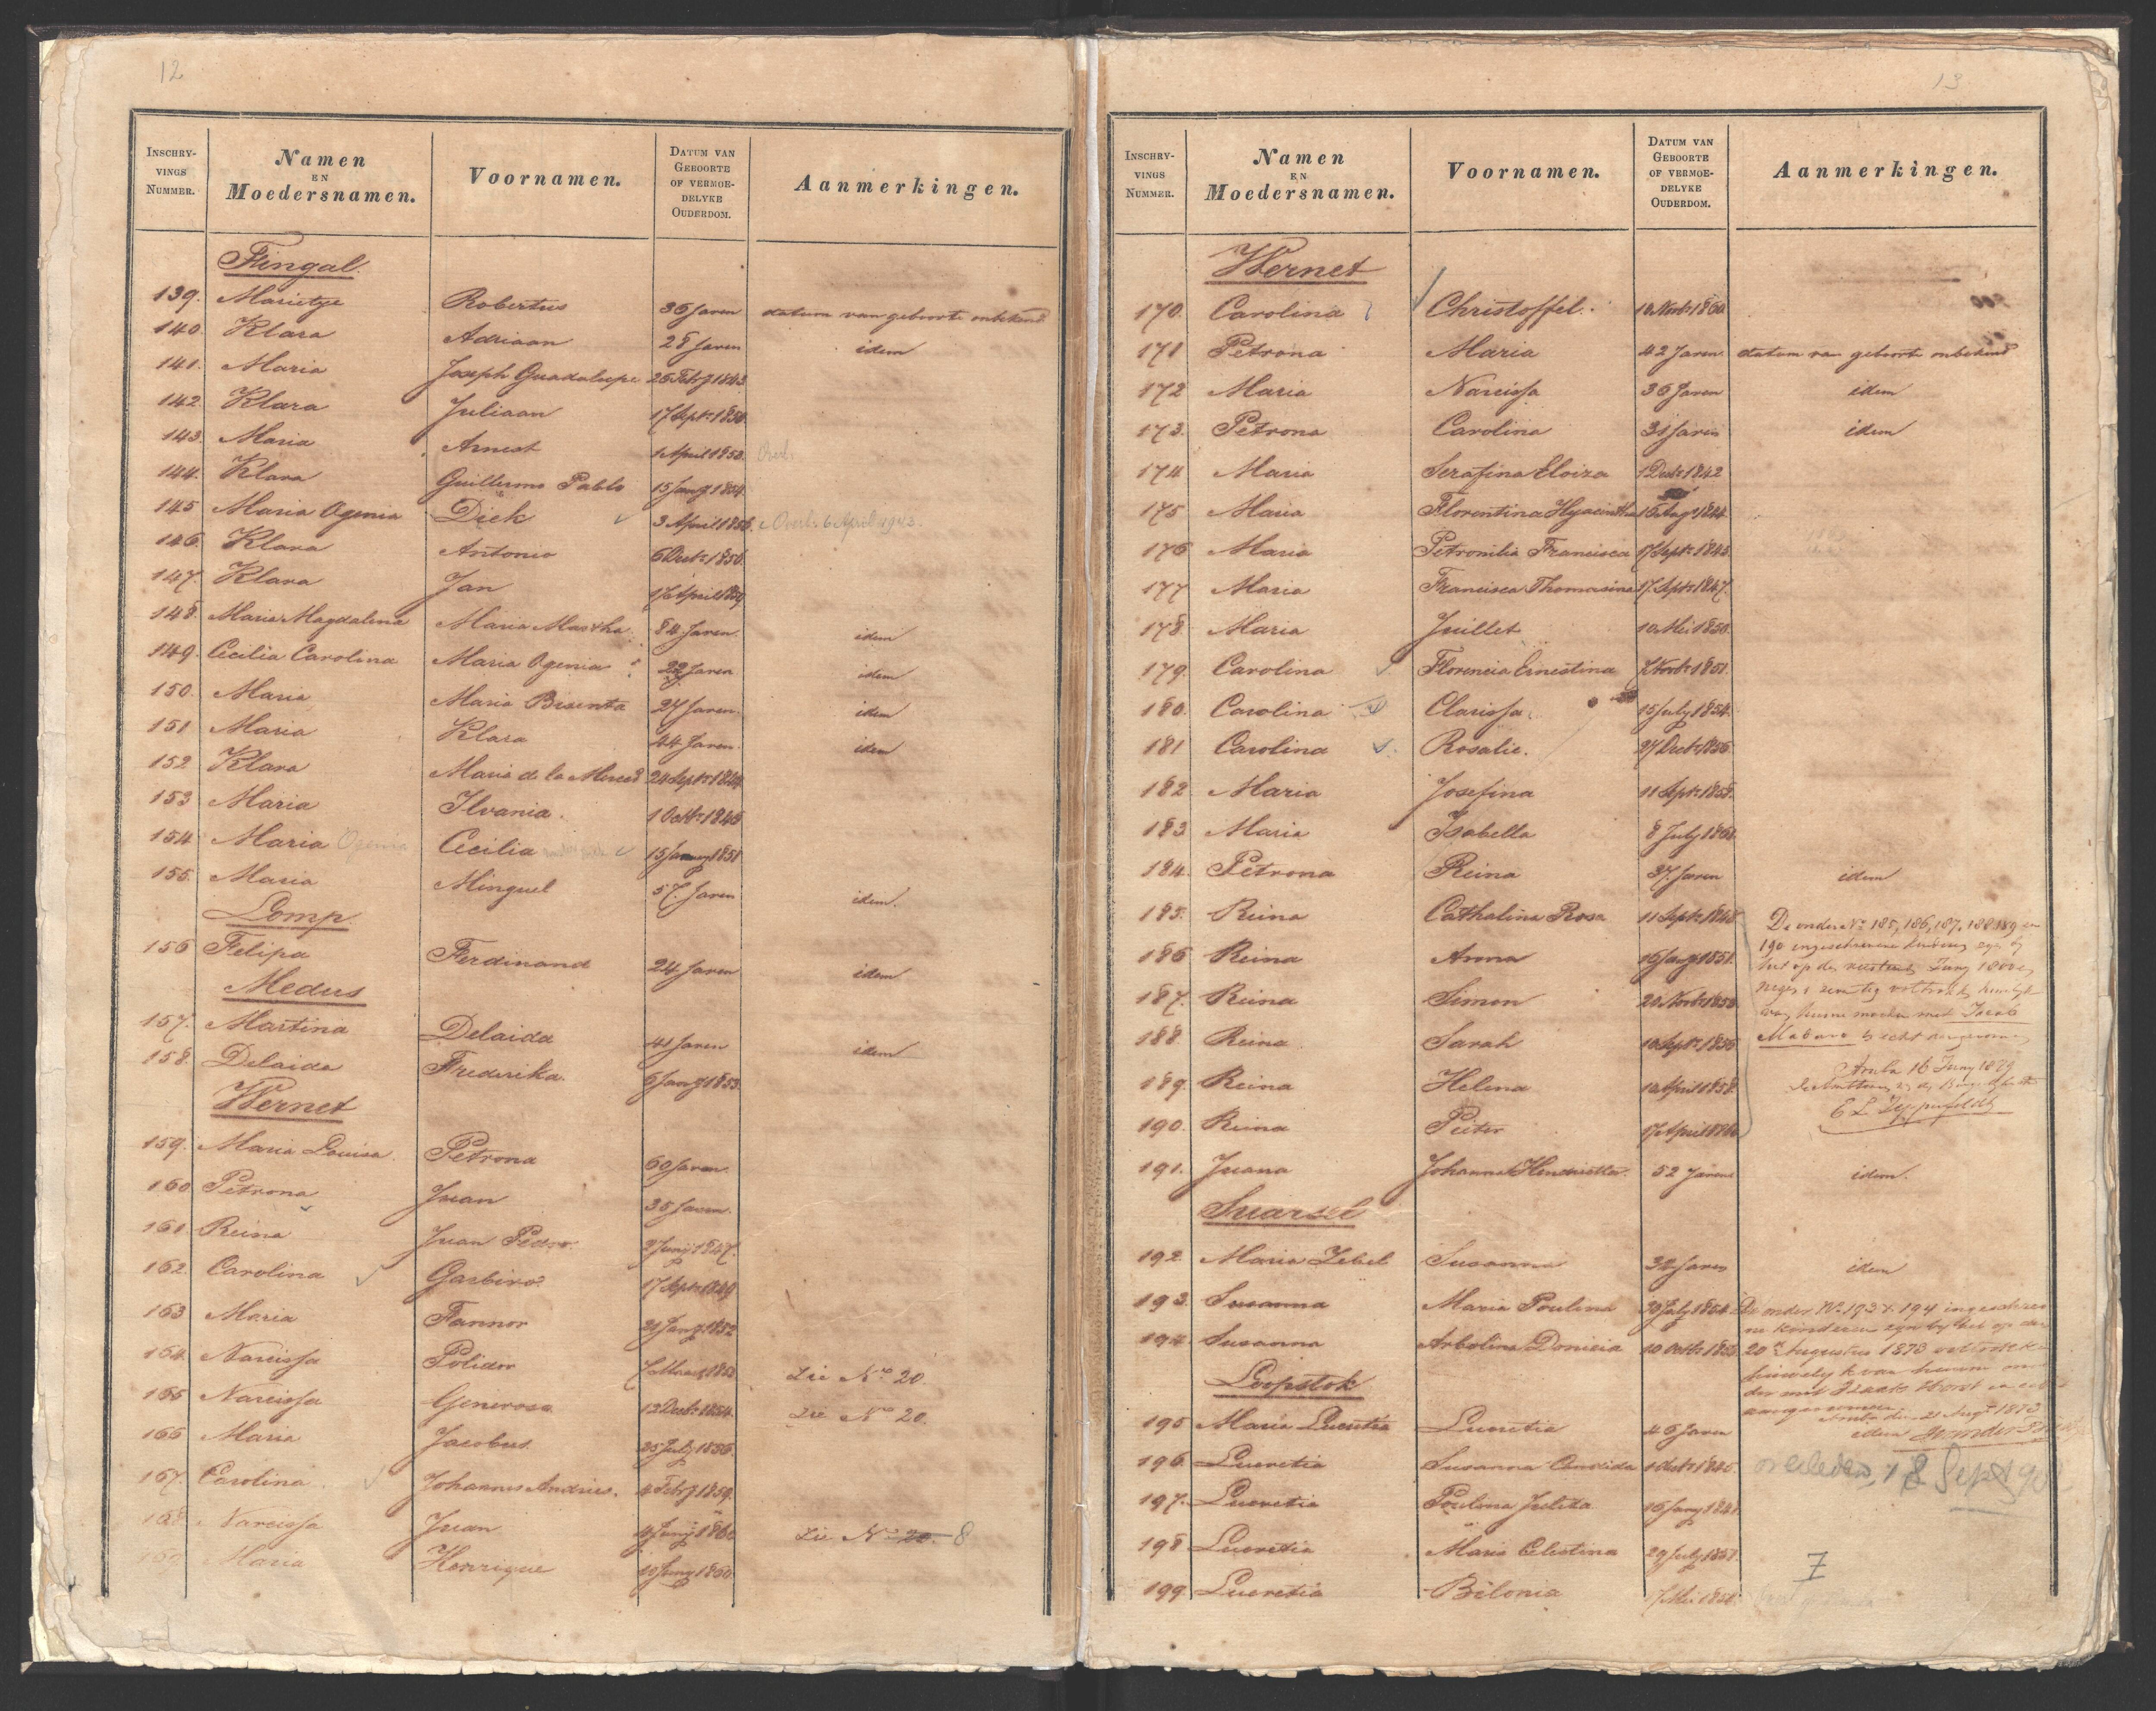 12
INSCHRY-
VINGS
NUMMER.
Namen
EN
Moedersnamen.
Voornamen.
DATUM VAN
GEBOORTE
OF VERMOE-
DELYKE
OUDERDOM.
Aanmerkingen.
Fingal.
139. Marietje Robertus 36 Jaren datum van geboorte onbekend
140. Klara Adriaan 28 Jaren idem
141. Maria Joseph Guadaloupe 26 Feb. 1843
142. Klara Juliaan 17 Sept. 1850.
143. Maria Arnest 1 April 1853. Overl.
144. Klara Guillermo Pablo 15 Jany 1854.
145 Maria Ogenia Dick 3 April 1856. Overl. 6 April 1943.
146. Klara Antonio 6 Dect. 1856.
147. Klara Jan 17 April 1859
148. Maria Magdalena Maria Martha 84 Jaren. idem
149. Cecilia Carolina Maria Ogenia 22 Jaren idem
150. Maria Maria Bisenta 27 Jaren. idem
151 Maria Klara 44 Jaren. idem
152 Klara Maria de la Merced 24 Sept. 1844
153 Maria Ilvania. 1 Octr. 1845
154 Maria Ogenia Cecilia 15 Jany 1851
155. Maria Minguel 57. Jaren idem.
Lomp.
156 Felipa Ferdinand 24 Jaren idem
Medus
157. Martina Delaida 41 Jaren idem
158. Delaida Frederika. 6 Jany 1853.
Wernet
159. Maria Louisa. Petrona 60 Jaren.
160 Petrona Juan 35 Jaren.
161. Reina Juan Pedro. 2 Junij 1847.
162. Carolina Garbino 17 Sept. 1849
163 Maria Fannor 21 Jany 1852
164. Narcissa Polidor 7 Maart 1853 Zie No. 20.
165 Narcissa Generosa 12 Dect. 1854. Zie No. 20.
166 Maria Jacobus. 25 July 1856.
167. Carolina. Johannes Andries. 4 Feb. 1859.
168. Narcissa Juan 4 Junij 1860 Zie No. 20. 8
169. Maria Henrique 10 Juny 1860.
13
INSCHRY-
VINGS
NUMMER.
Namen
EN
Moedersnamen.
Voornamen.
DATUM VAN
GEBOORTE
OF VERMOE-
DELYKE
OUDERDOM.
Aanmerkingen.
Wernet
170. Carolina Christoffel. 10 Novb. 1860.
171 Petrona Maria 42 Jaren. datum van geboorte onbekend
172 Maria Narcissa 36 Jaren idem
173. Petrona Carolina 31 Jaren idem
174 Maria Serafina Eloiza 1 Dect. 1842
175 Maria Florentina Hyacintha 16 Aug. 1844
176 Maria Petronilia Francisca 17 Sept. 1845.
177 Maria Francisca Thomasina 17. Sept. 1847.
178. Maria Juillet 10 Mei 1850.
179. Carolina Florencia Ernestina 7 Novb. 1851.
180. Carolina Clarissa. 15 July 1854.
181 Carolina Rosalie. 27 Dect. 1856
182. Maria Josefina 11 Sept. 1858.
183. Maria Isabella 8 July 1861.
184. Petrona Reina 37. Jaren idem
185. Reina Cathalina Rosa 11 Sept. 1848
De onder No. 185, 186, 187, 188, 189 en
186 Reina Anna 16 Jany 1851.
190 ingeschrevene kinderen zyn by
het op den Juny 1800
187. Reina Simon 20 Novb. 1853.
negen en zeventig voltrokken huwelyk
van hunne moeder met Jacob
188. Reina Sarah 10 Sept. 1856
Madure
189. Reina Helena 10 April 1858.
Aruba 16 Juny 1879
190. Reina Pieter 17 April 1860
191. Juana Johanna Henrietta. 52 Jaren idem.
Suarset
192. Maria Zebel Susanna 32 Jaren idem
193. Susanna Maria Paulina 30 July 1854
De onder No. 193 & 194 ingeschreve
ne kinderen zyn by het op den
194. Susanna Arbolina Donicia 10 Octb. 1858
20 Augustus 1873 voltrokken
huwelyk van hunne moe
der met Isaak Worst
Loopstok
aangenomen
Aruba den 21 Augt. 1873
195 Maria Lucretia Lucretia 46 Jaren
196. Lucretia Susanna Candida 1 Dect. 1845.
overleden, 18 Sept 190
197. Lucretia Paulina Julita 16 Jany 1848.
198 Lucretia Maria Celestina 29 July 1851.
199. Lucretia Bilonia 7 Mei 1858.